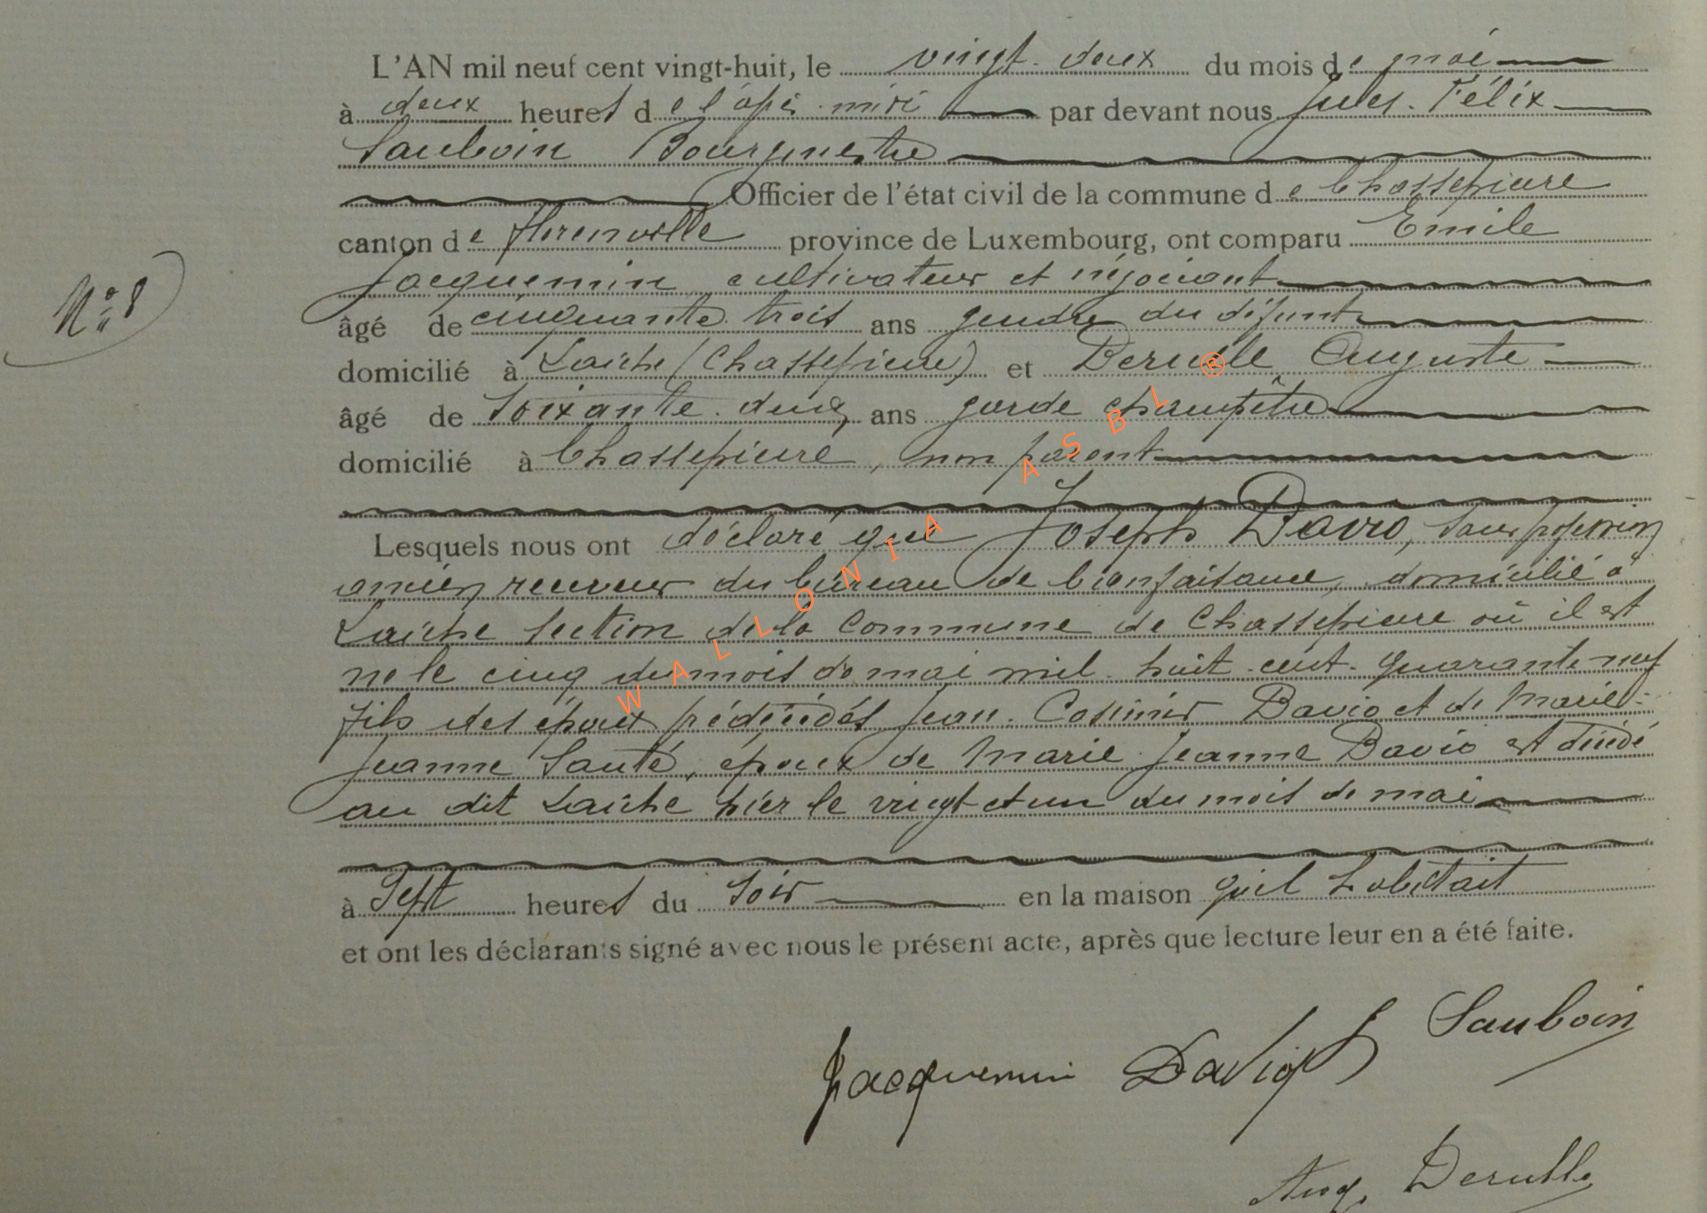 L'AN mil neuf cent vingt-huit, le vingt-deux du mois de mai
à deux heures de l'après-midi par devant nous Jules-Félix
Sauboin Bourgmestre
Officier de l'état civil de la commune de Chassepierre
canton de Florenville province de Luxembourg, ont comparu Emile
Jacquemin cultivateur et négociant
Nº 8
âgé de cinquante trois ans gendre du défunt
domicilié à Laiche (Chassepierre) et Derulle Auguste
âgé de soixante-cinq ans garde champêtre
domicilié à Chassepierre, non parent
Lesquels nous ont déclaré que Joseph Davio, sans profession
ancien receveur du bureau de bienfaisance, domicilié à
Laiche section de la commune de Chassepierre où il est
né le cinq du mois de mai mil-huit-cent-quarante-neuf
fils des époux prédécédés Jean-Casimir Davio et de Marie-
Jeanne Santé, époux de Marie-Jeanne Davio est décédé
au dit Laiche hier le vingt et un du mois de mai
à sept heures du soir en la maison qu'il habitait
et ont les déclarants signé avec nous le présent acte, après que lecture leur en a été faite.
Sauboin
Jacquemin Davio
Aug. Derulle
WALLONIA ASBL ®